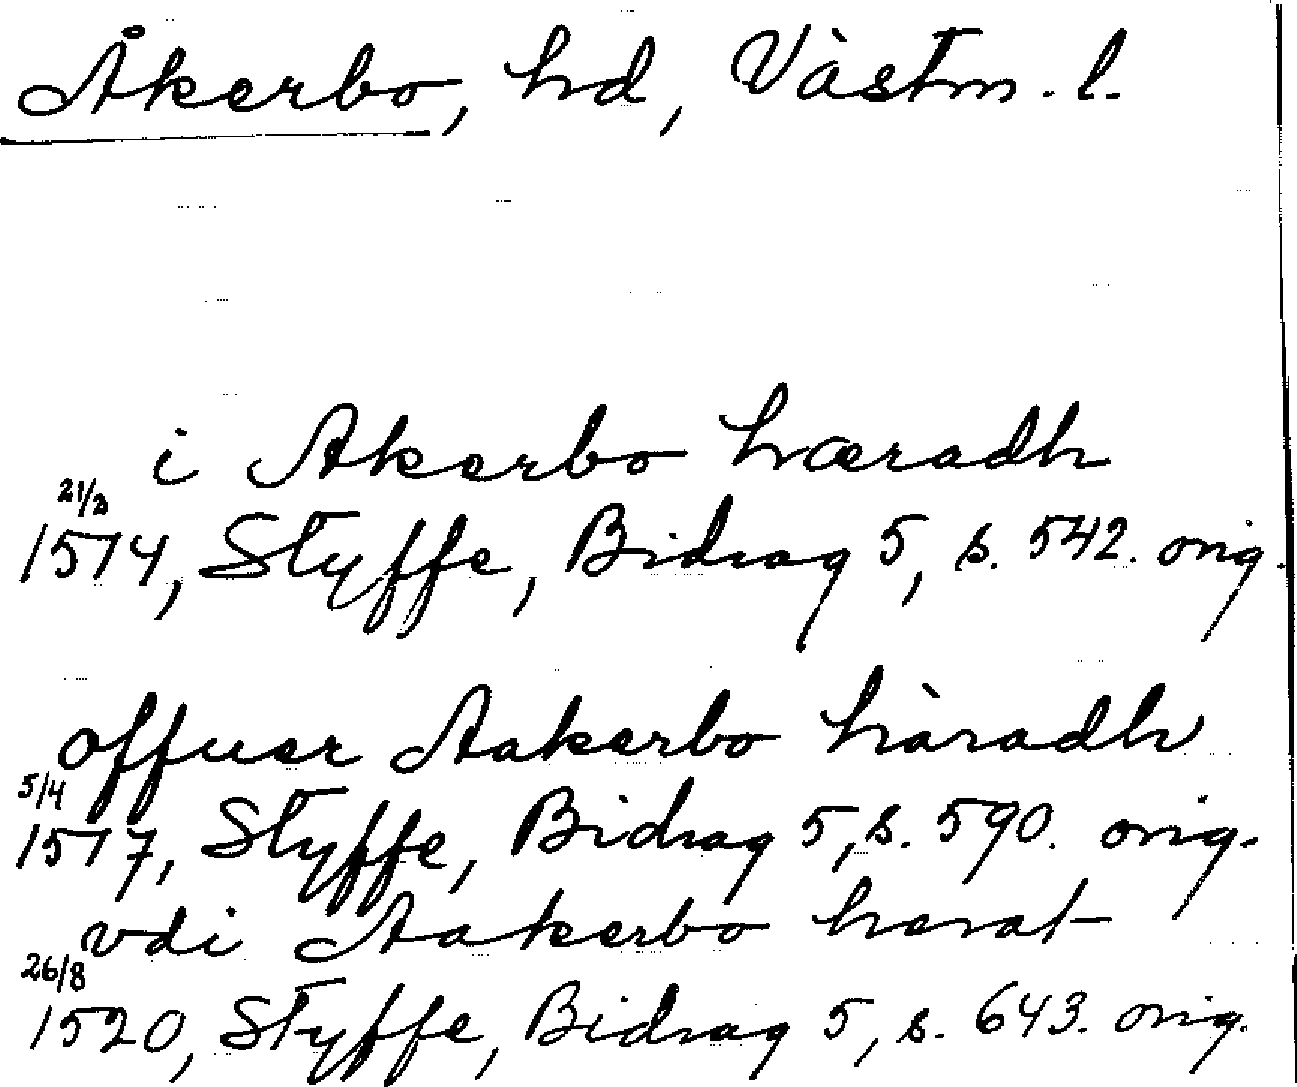 Åkerbo, hd, Västm. l.
i Akerbo hæradh
21/3
1514, Styffe, Bidrag 5, s. 542. orig.
offuer Aakerbo häradh
5/4
1517, Styffe, Bidrag 5, s. 590. orig.
vdi Aakerbo herat
26/8
1520, Styffe, Bidrag 5, s. 643. orig.